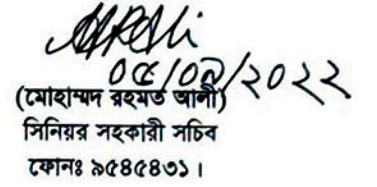 ০৫/০৯/২০২২
(মোহাম্মদ রহমত আলী)
সিনিয়র সহকারী সচিব
ফোনঃ ৯৫৪৫৪৩১।